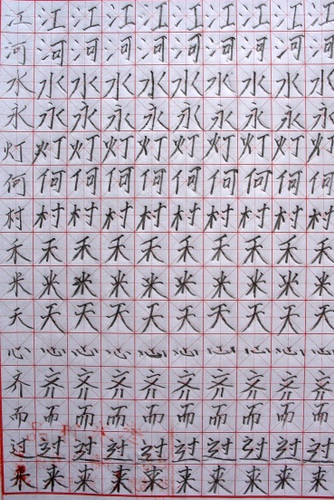 江江江江江江江江江江
河河河河河河河河河河
水水水水水水水水水水
永永永永永永永永永永
灯灯灯灯灯灯灯灯灯灯
何何何何何何何何何何
村村村村村村村村村村
禾禾禾禾禾禾禾禾禾禾
米米米米米米米米米米
天天天天天天天天天天
心心心心心心心心心心
齐齐齐齐齐齐齐齐齐齐
而而而而而而而而而而
过过过过过过过过过过
来来来来来来来来来来